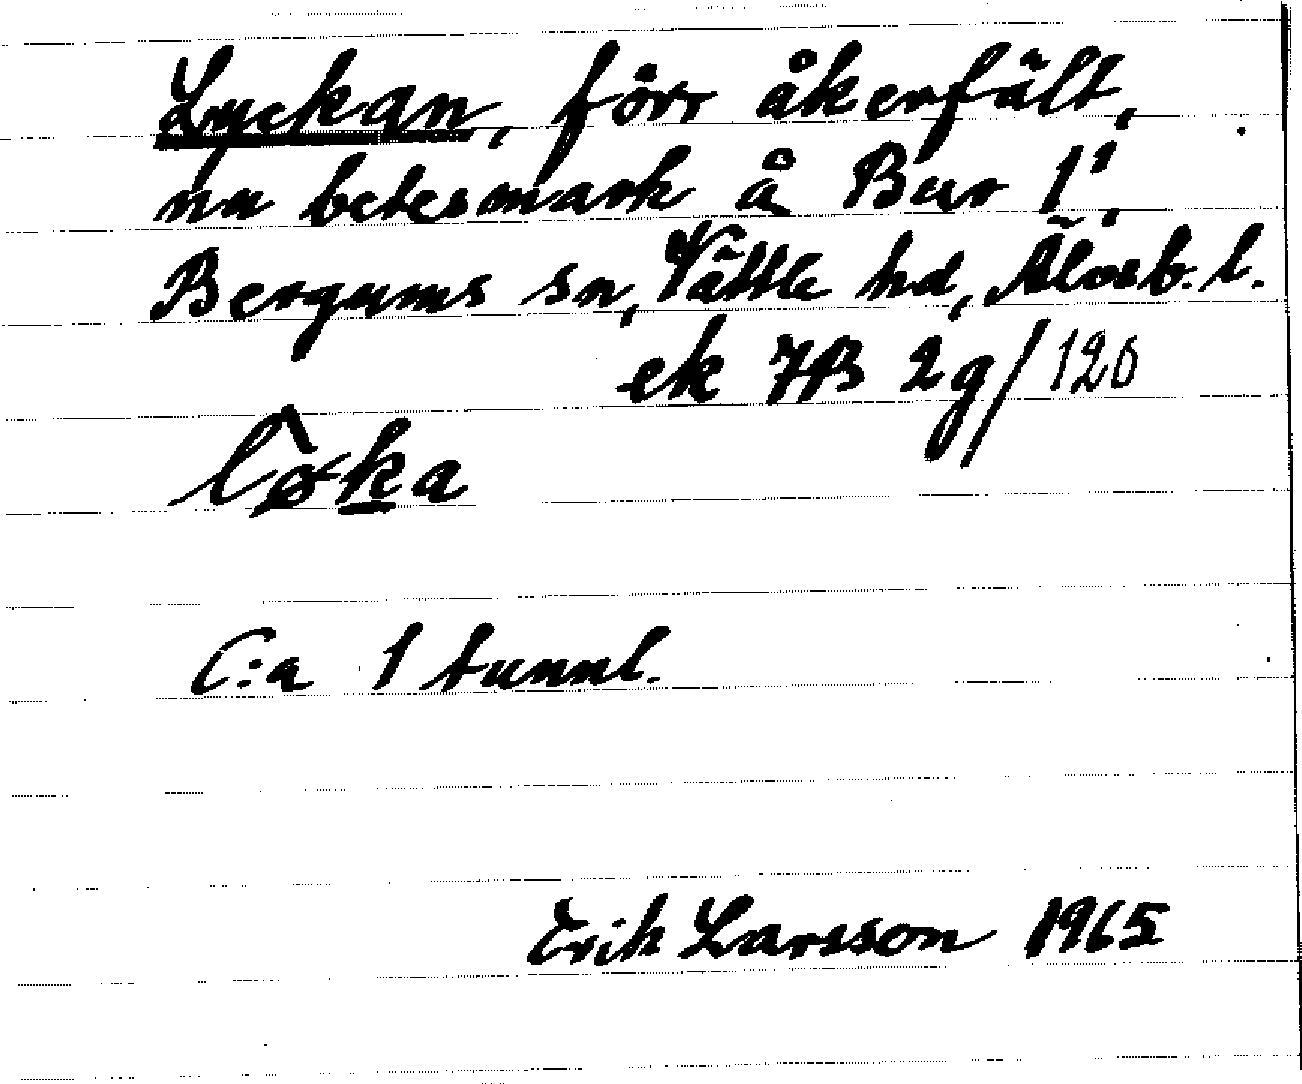 Lyckan, förr åkerfält,
nu betesmark å Bur 1¹,
Bergums sn, Vättle hd, Älvsb. l.
ek 7B 2g/120
C:a 1 tunnl.
Erik Larsson 1965